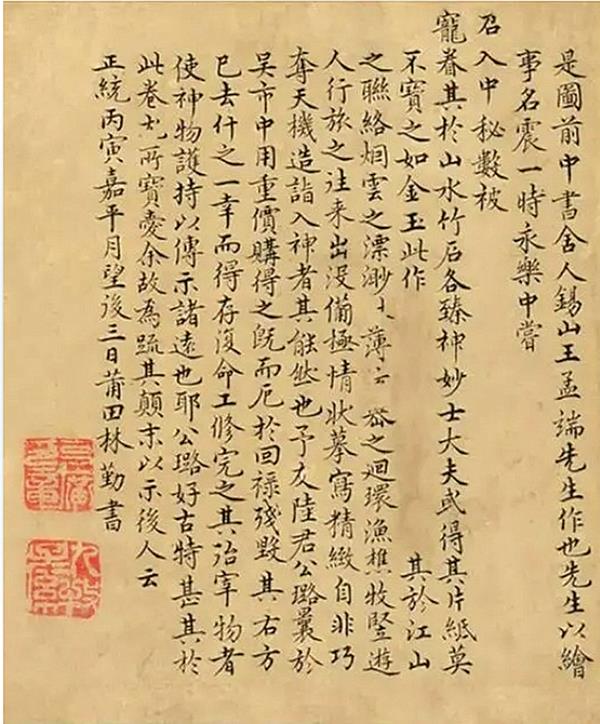 是圖前中書舍人錫山王孟端先生作也先生以繪
事名震一時永樂中嘗
召入中秘數被
寵眷其於山水竹石各臻神妙士大夫或得其片紙莫
不寶之如金玉此作 其於江山
之聯絡烟雲之漂渺 薄 之迴環漁樵牧豎遊
人行旅之往來出没備極情狀摹寫精緻自非巧
奪天機造詣入神者其能然也予友陸君公璐曩於
吳市中用重價購得之既而厄於回祿殘毀其右方
已去什之一幸而得存復命工修完之其殆宰物者
使神物護持以傳示諸遠也耶公璐好古特甚其於
此卷尤所寶愛余故為疏其顛末以示後人云
正統丙寅嘉平月望後三日莆田林勤書